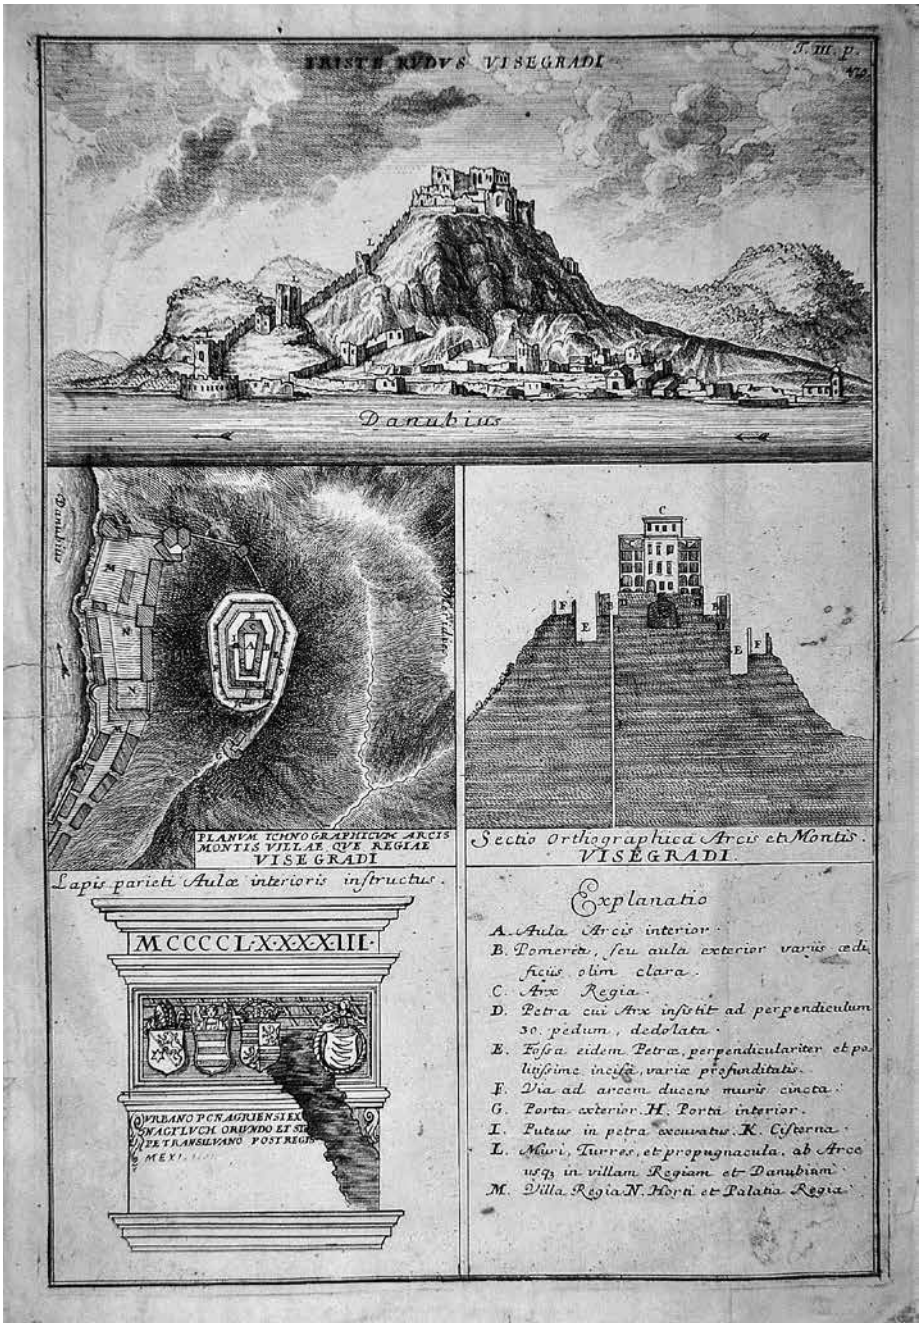 T. III. p.
470
TRISTE RVDVS VISEGRADI
L
L
Danubius
Danubius
M
N
N
A
PLANVM ICHNOGRAPHICVM ARCIS
MONTIS VILLAE QVE REGIAE
VISEGRADI
C
F
B
B
E
D
E
F
Sectio Orthographica Arcis et Montis.
VISEGRADI.
Lapis parieti Aulæ interioris instructus.
MCCCCCL·X·X·X·X·III·
VRBANO PCNAGRIENSI EX
NAGI LVCH ORIVNDO ET STI
PE TRANSILVANO POST REGIS
MEXI
Explanatio
A. Aula Arcis interior.
B. Pomeria, seu aula exterior varijs ædi
ficijs olim clara.
C. Arx Regia.
D. Petra cui Arx insistit ad perpendiculum
30. pedum, dedolata.
E. Fossa eidem Petræ, perpendiculariter et po
litissime incisa, variæ profunditatis.
F. Via ad arcem ducens muris cincta.
G. Porta exterior. H. Porta interior.
I. Puteus in petra excavatus. K. Cisterna
L. Muri, Turres, et propugnacula, ab Arce
usq; in villam Regiam et Danubium.
M. Villa Regia N. Horti et Palatia Regia